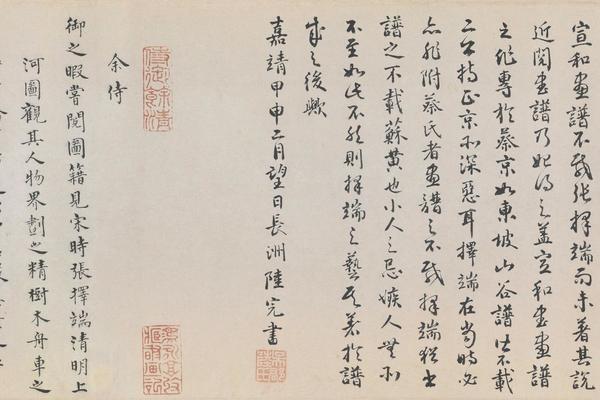 宣和畫譜不載張擇端而未著其說
近閱書譜乃始得之蓋宣和書畫譜
之作專於蔡京如東坡山谷譜皆不載
二公持正京所深惡耳擇端在當時必
亦非附蔡氏者畫譜之不載擇端猶書
譜之不載蘇黃也小人之忌嫉人無所
不至如此不然則擇端之藝其著於譜
成之後歟
嘉靖甲申二月望日長洲陸完書
余侍
御之暇嘗閱圖籍見宋時張擇端清明上
河圖觀其人物界劃之精樹木舟車之